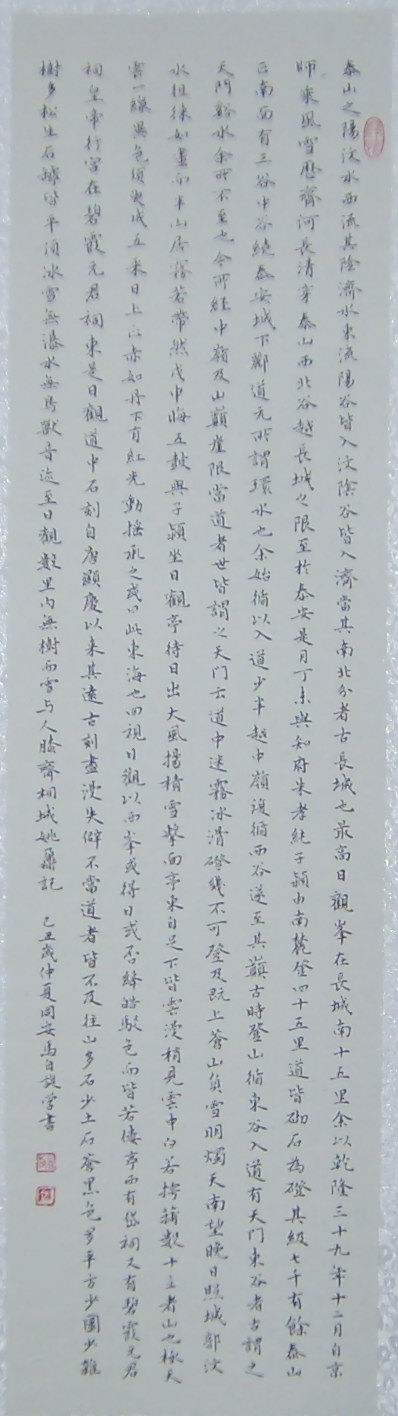 泰山之陽汶水西流其陰濟水東流陽谷皆入汶陰谷皆入濟當其南北分者古長城也最高日觀峯在長城南十五里余以乾隆三十九年十二月自京
師乘風雪歷齊河長清穿泰山西北谷越長城之限至於泰安是月丁未與知府朱孝純子潁由南麓登四十五里道皆砌石為磴其級七千有餘泰山
正南面有三谷中谷繞泰安城下酈道元所謂環水也余始循以入道少半越中嶺復循西谷遂至其巔古時登山循東谷入道有天門東谷者古謂之
天門谿水余所不至也今所經中嶺及山巔崖限當道者世皆謂之天門云道中迷霧冰滑磴幾不可登及既上蒼山負雪明燭天南望晚日照城郭汶
水徂徠如畫而半山居霧若帶然戊申晦五鼓與子潁坐日觀亭待日出大風揚積雪擊面亭東自足下皆雲漫稍見雲中白若摴蒱數十立者山也極天
雲一線異色須臾成五采日上正赤如丹下有紅光動搖承之或曰此東海也回視日觀以西峯或得日或否絳皓駁色而皆若僂亭西有岱祠又有碧霞元君
祠皇帝行宮在碧霞元君祠東是日觀道中石刻自唐顯慶以來其遠古刻盡漫失僻不當道者皆不及往山多石少土石蒼黑色多平方少圜少雜
樹多松生石罅皆平頂冰雪無瀑水無鳥獸音迹至日觀數里內無樹而雪与人膝齊桐城姚鼐記 己丑歲仲夏同安馬自設學書